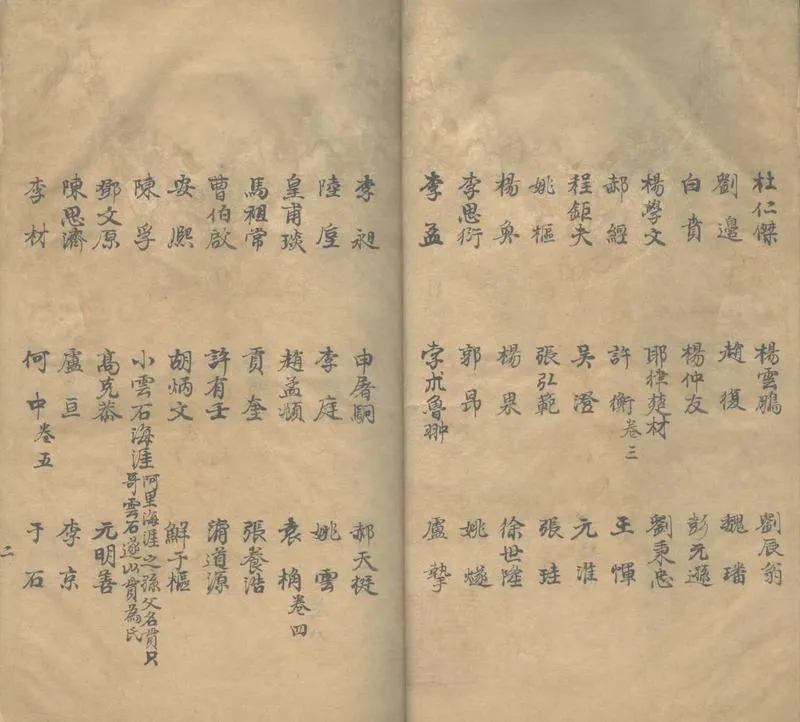 杜仁傑 楊雲鵬 劉辰翁
劉邊 趙復 魏璠
白賁 楊仲友 彭元遜
楊學文 耶律楚材 劉秉忠
郝經 許衡卷三 王惲
程鉅夫 吳澄 元淮
姚樞 張弘範 張珪
楊奐 楊果 徐世隆
李思衍 郭昂 姚燧
李孟 孛朮魯翀 盧摯
李昶 申屠駉 郝天挺
陸垕 李庭 姚雲
皇甫琰 趙孟頫 袁桷卷四
馬祖常 貢奎 張養浩
曹伯啟 許有壬 蒲道源
安熙 胡炳文 鮮于樞
陳孚 小雲石海涯 阿里海涯之孫父名貫只
哥雲石遂以貫為氏
鄧文原 高克恭 元明善
陳思濟 盧亘 李京
李材 何中卷五 于石
二